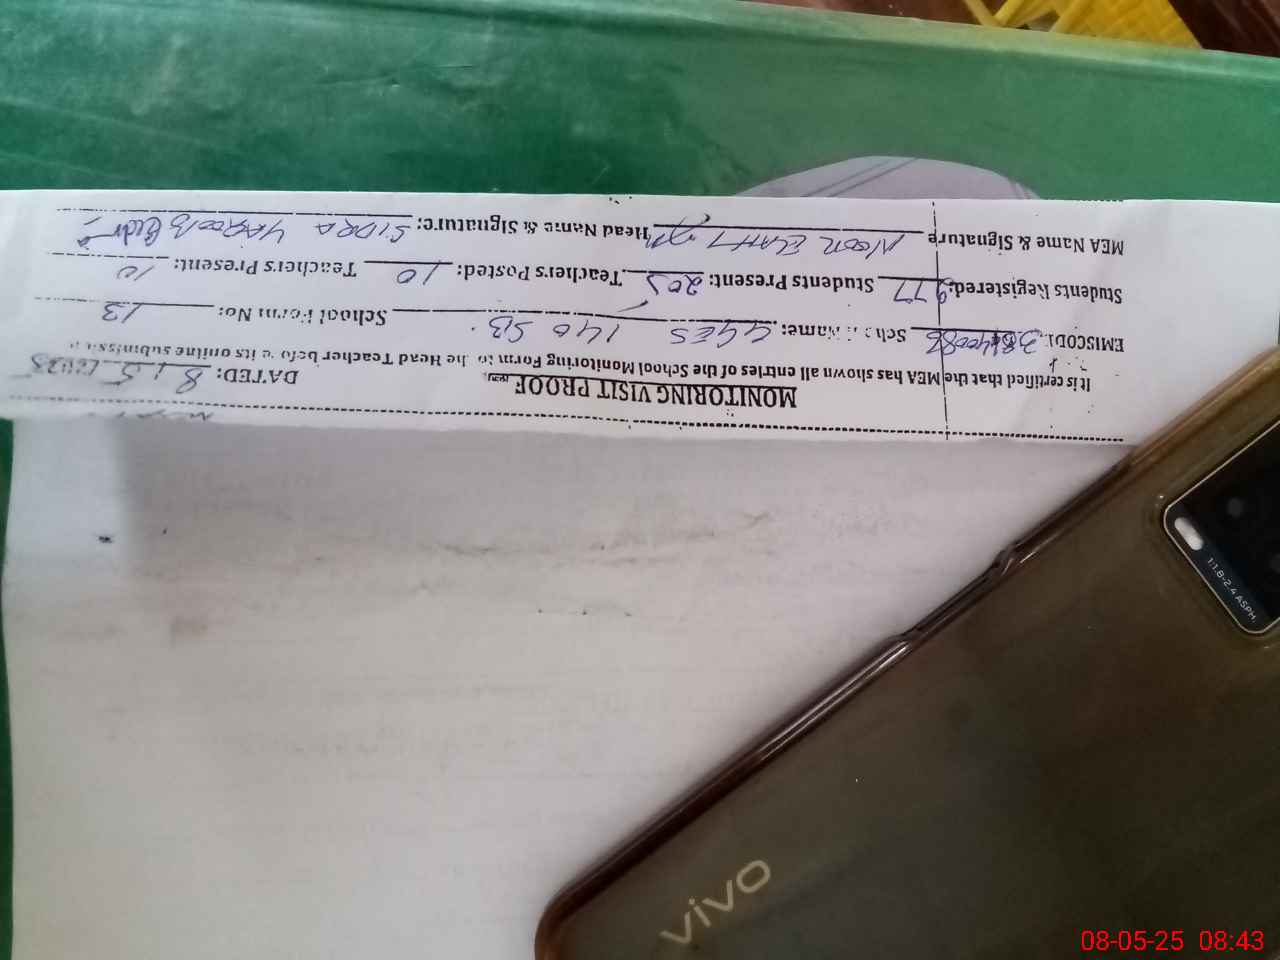 MONITORING VISIT PROOF DATED: 8.5.2025
It is certified that the MEA has shown all entries of the School Monitoring Form to the Head Teacher before its online submission
EMISCODE: School Name: GGES 140 SB School Form No: 13
Students Registered: 277 Students Present: 205 Teachers Posted: 10 Teachers Present: 10
MEA Name & Signature NOOR ELAHI Head Name & Signature: SIDRA YAROOB
1:1.8-2.4 ASPH.
vivo
08-05-25 08:43